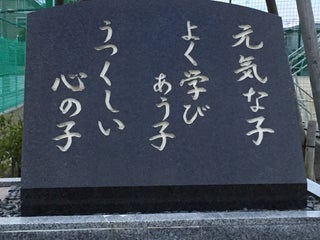 元気な子
よく学び
あう子
うつくしい
心の子